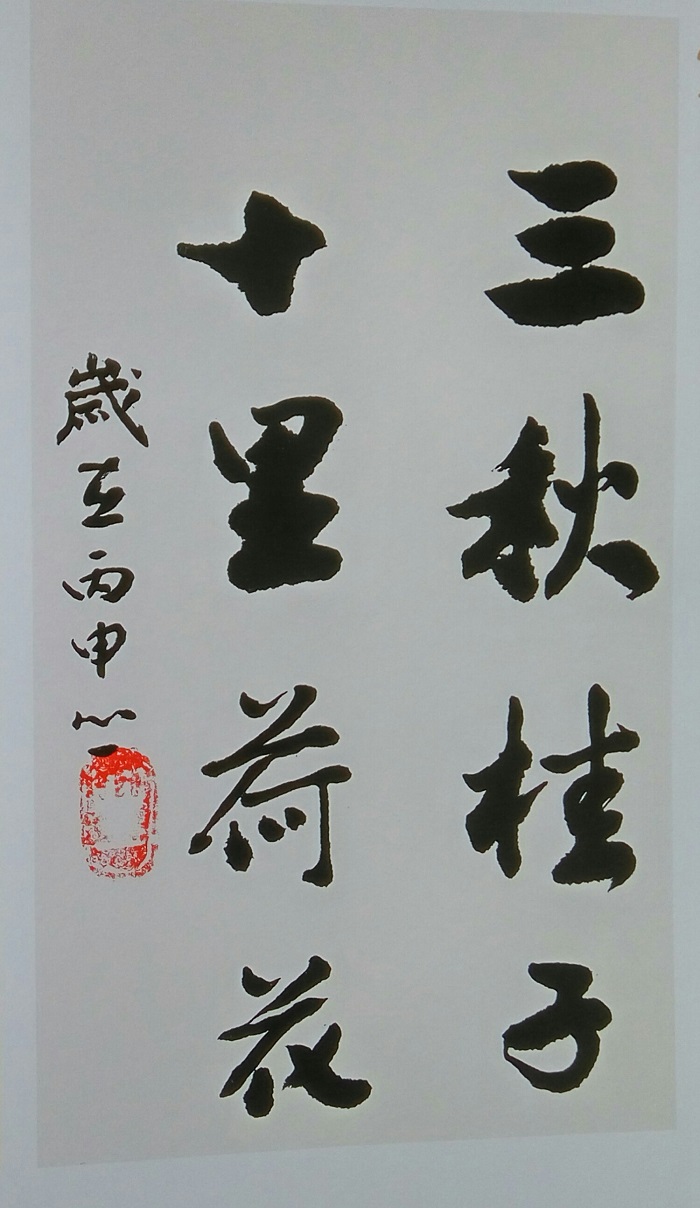 三秋桂子
十里荷花
歲在丙申